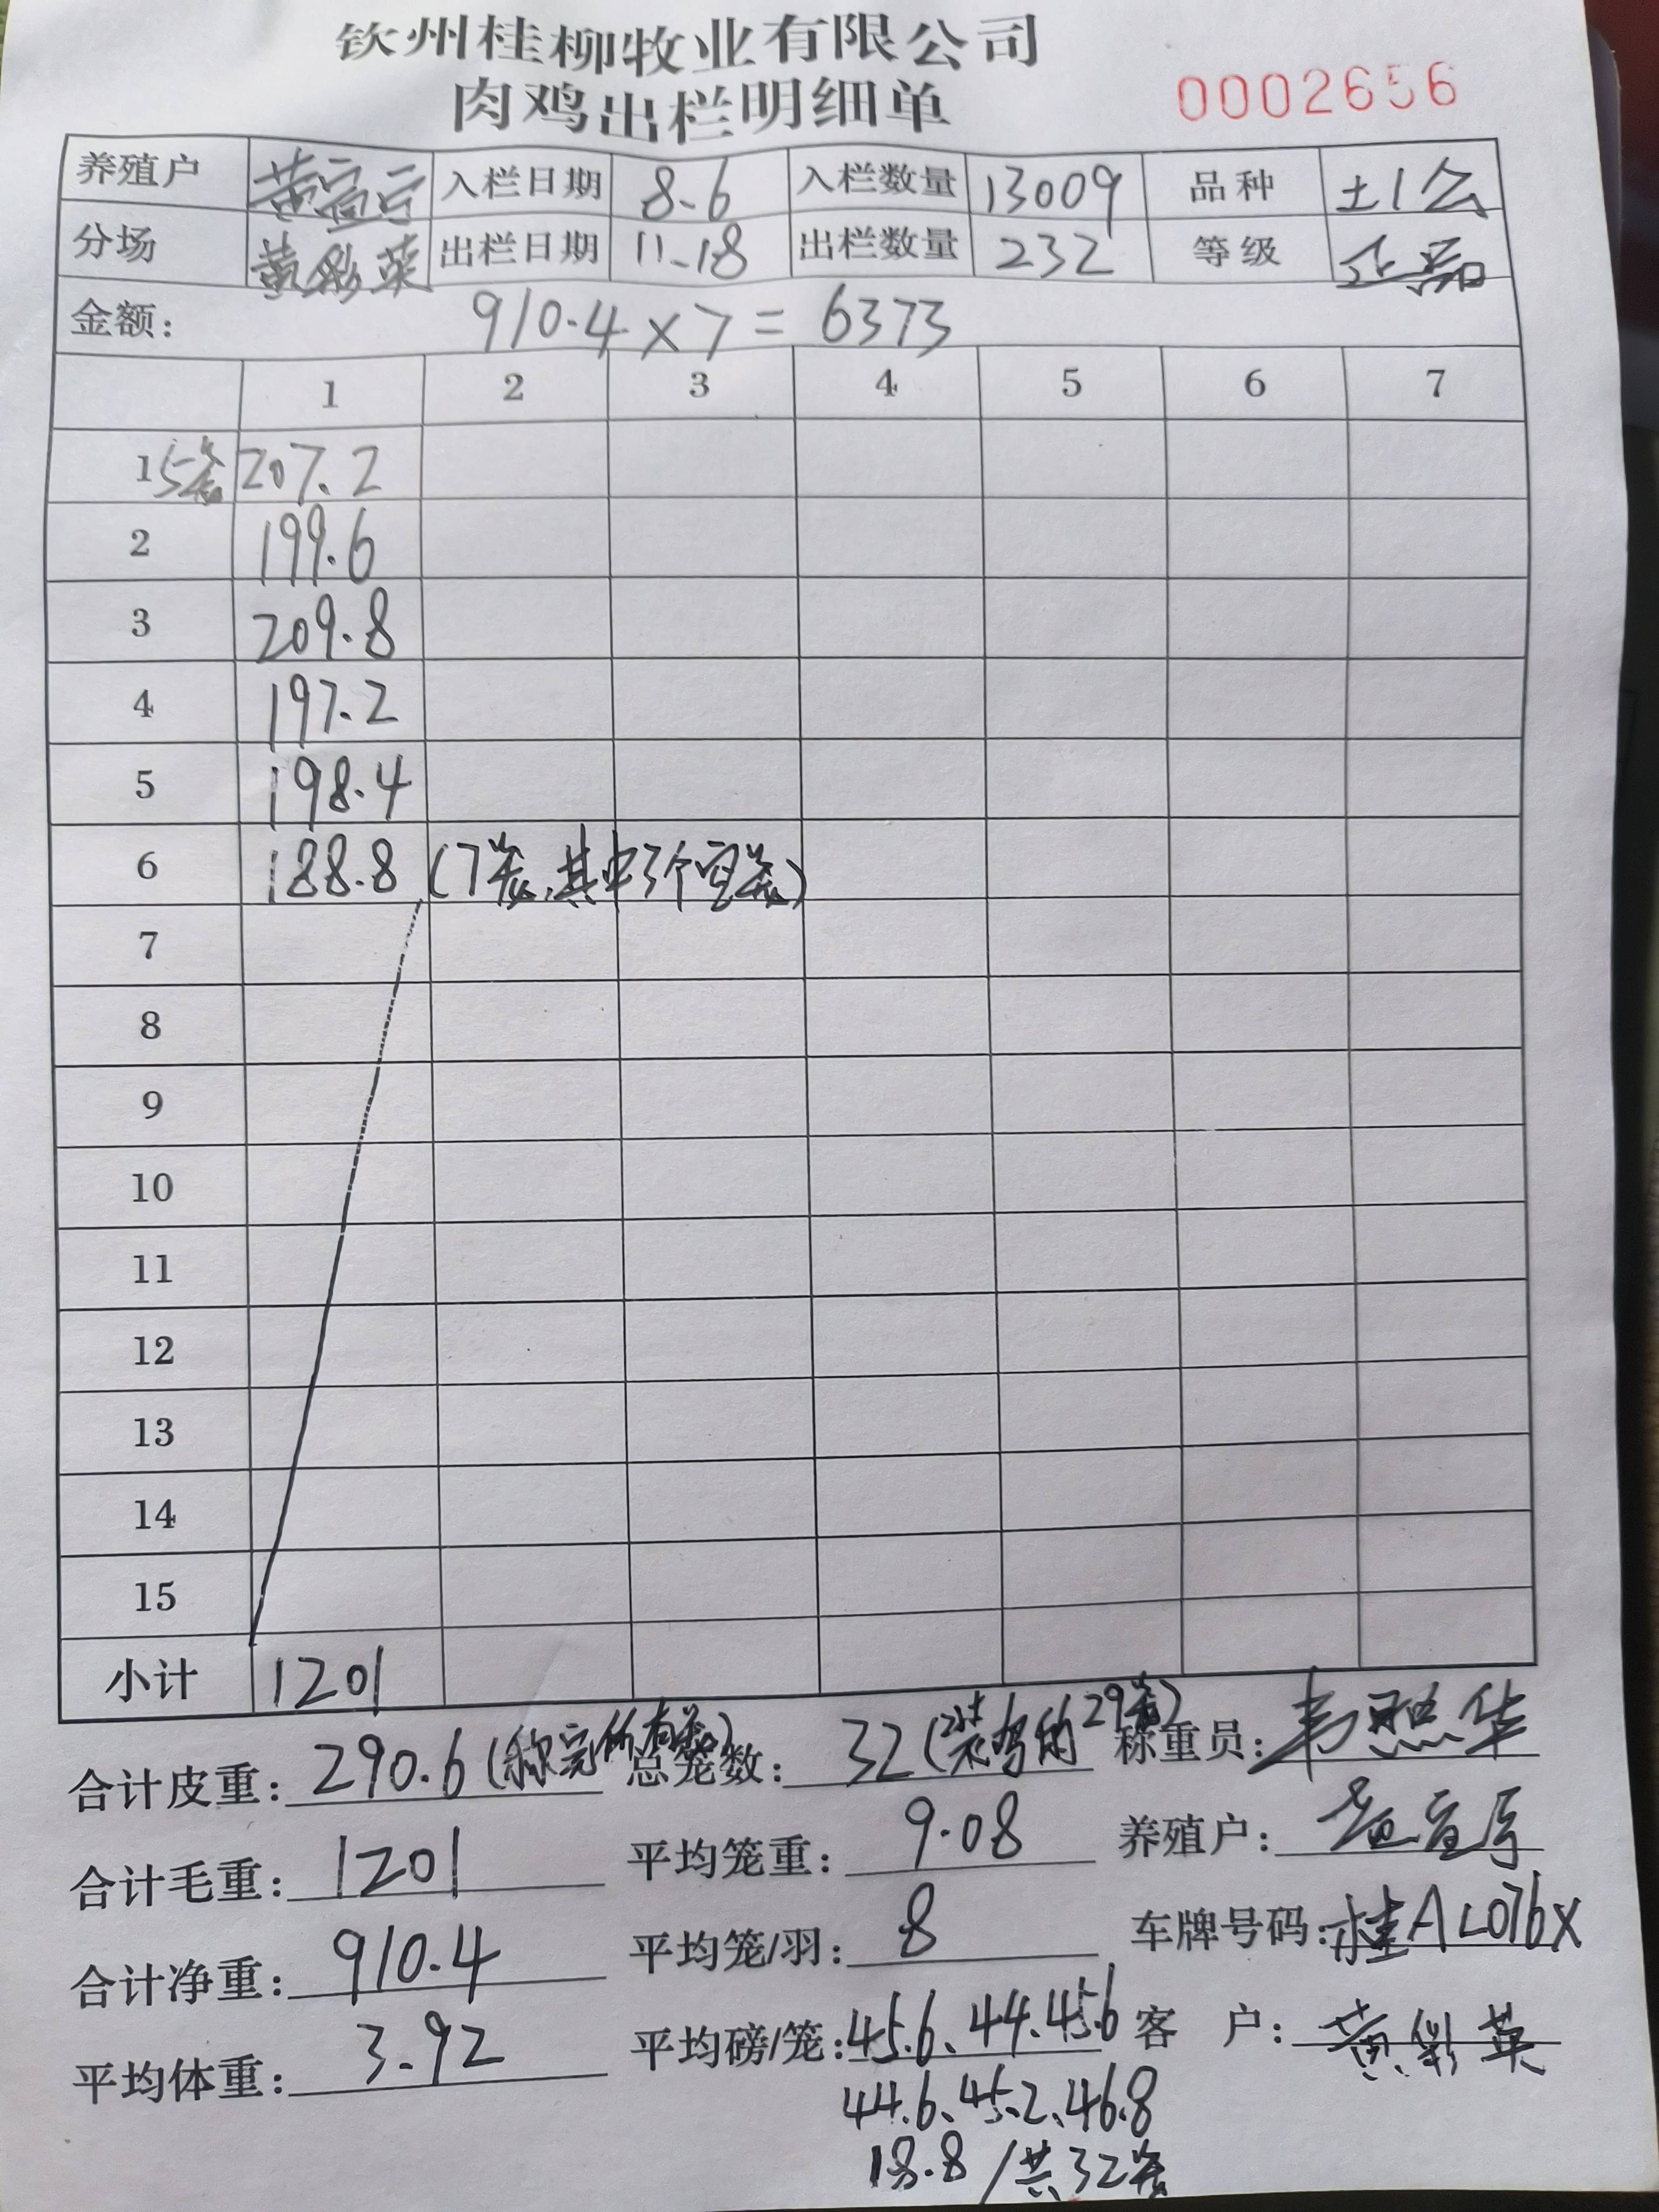 钦州桂柳牧业有限公司
肉鸡出栏明细单
0002656
养殖户 黄宣宁 入栏日期 8-6 入栏数量 13009 品种 土1公
分场 黄彩英 出栏日期 11-18 出栏数量 232 等级
金额: 910.4×7=6373
1 2 3 4 5 6 7
1 5笼 207.2
2 199.6
3 209.8
4 197.2
5 198.4
6 188.8 (7笼,其中3个空笼)
7
8
9
10
11
12
13
14
15
小计 1201
合计皮重: 290.6 (称完所有笼) 总笼数: 32 (装鸡的29笼) 称重员: 韦照华
合计毛重: 1201 平均笼重: 9.08 养殖户: 黄宣宁
合计净重: 910.4 平均笼/羽: 8 车牌号码: 桂AL076X
平均体重: 3.92 平均磅/笼: 45.6、44.45.6 客户: 黄彩英
44.6、45.2、46.8
18.8/共32笼